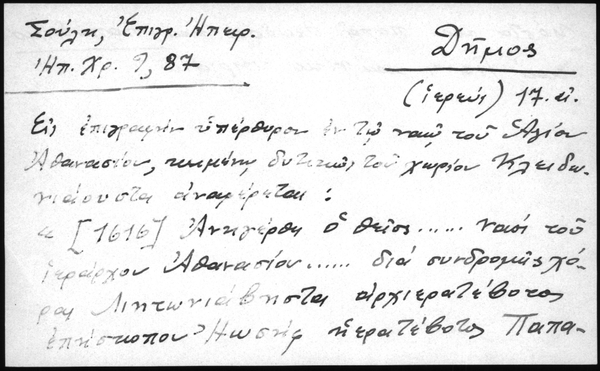 Σούλη, Ἐπιγρ. Ἠπειρ.
Ἠπ. Χρ. 9, 87
Δῆμος
(ἱερεύς) 17. αἰ.
Εἰς ἐπιγραφήν ὑπέρθυρον ἐν τῷ ναῷ τοῦ Ἁγίου
Ἀθανασίου, κειμένῳ δυτικῶς τοῦ χωρίου Κλειδω-
νιάουστα ἀναφέρεται :
« [1616] Ἀνηγέρθη ὁ θεῖος ...... ναός τοῦ
ἱεράρχου Ἀθανασίου ...... διά συνδρομῆς χό-
ρας Ληντωνιάβηστα ἀρχιερατέβοτος
ἐπησκοπου Ἠωσήφ ἠερατέβοτος Παπα-